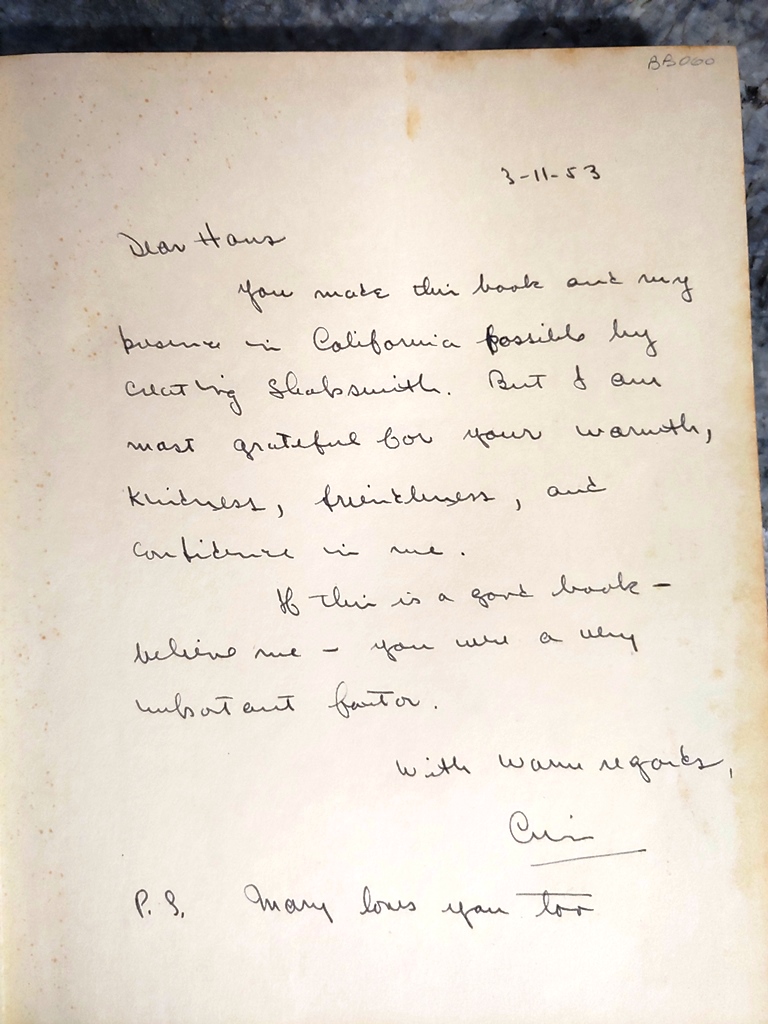 3-11-53
Dear Hans
You made this book and my
presence in California possible by
creating Shopsmith. But I am
most grateful for your warmth,
kindness, friendliness, and
confidence in me.
If this is a good book –
believe me – you were a very
important factor.
With warm regards,
P.S. Mary loves you too